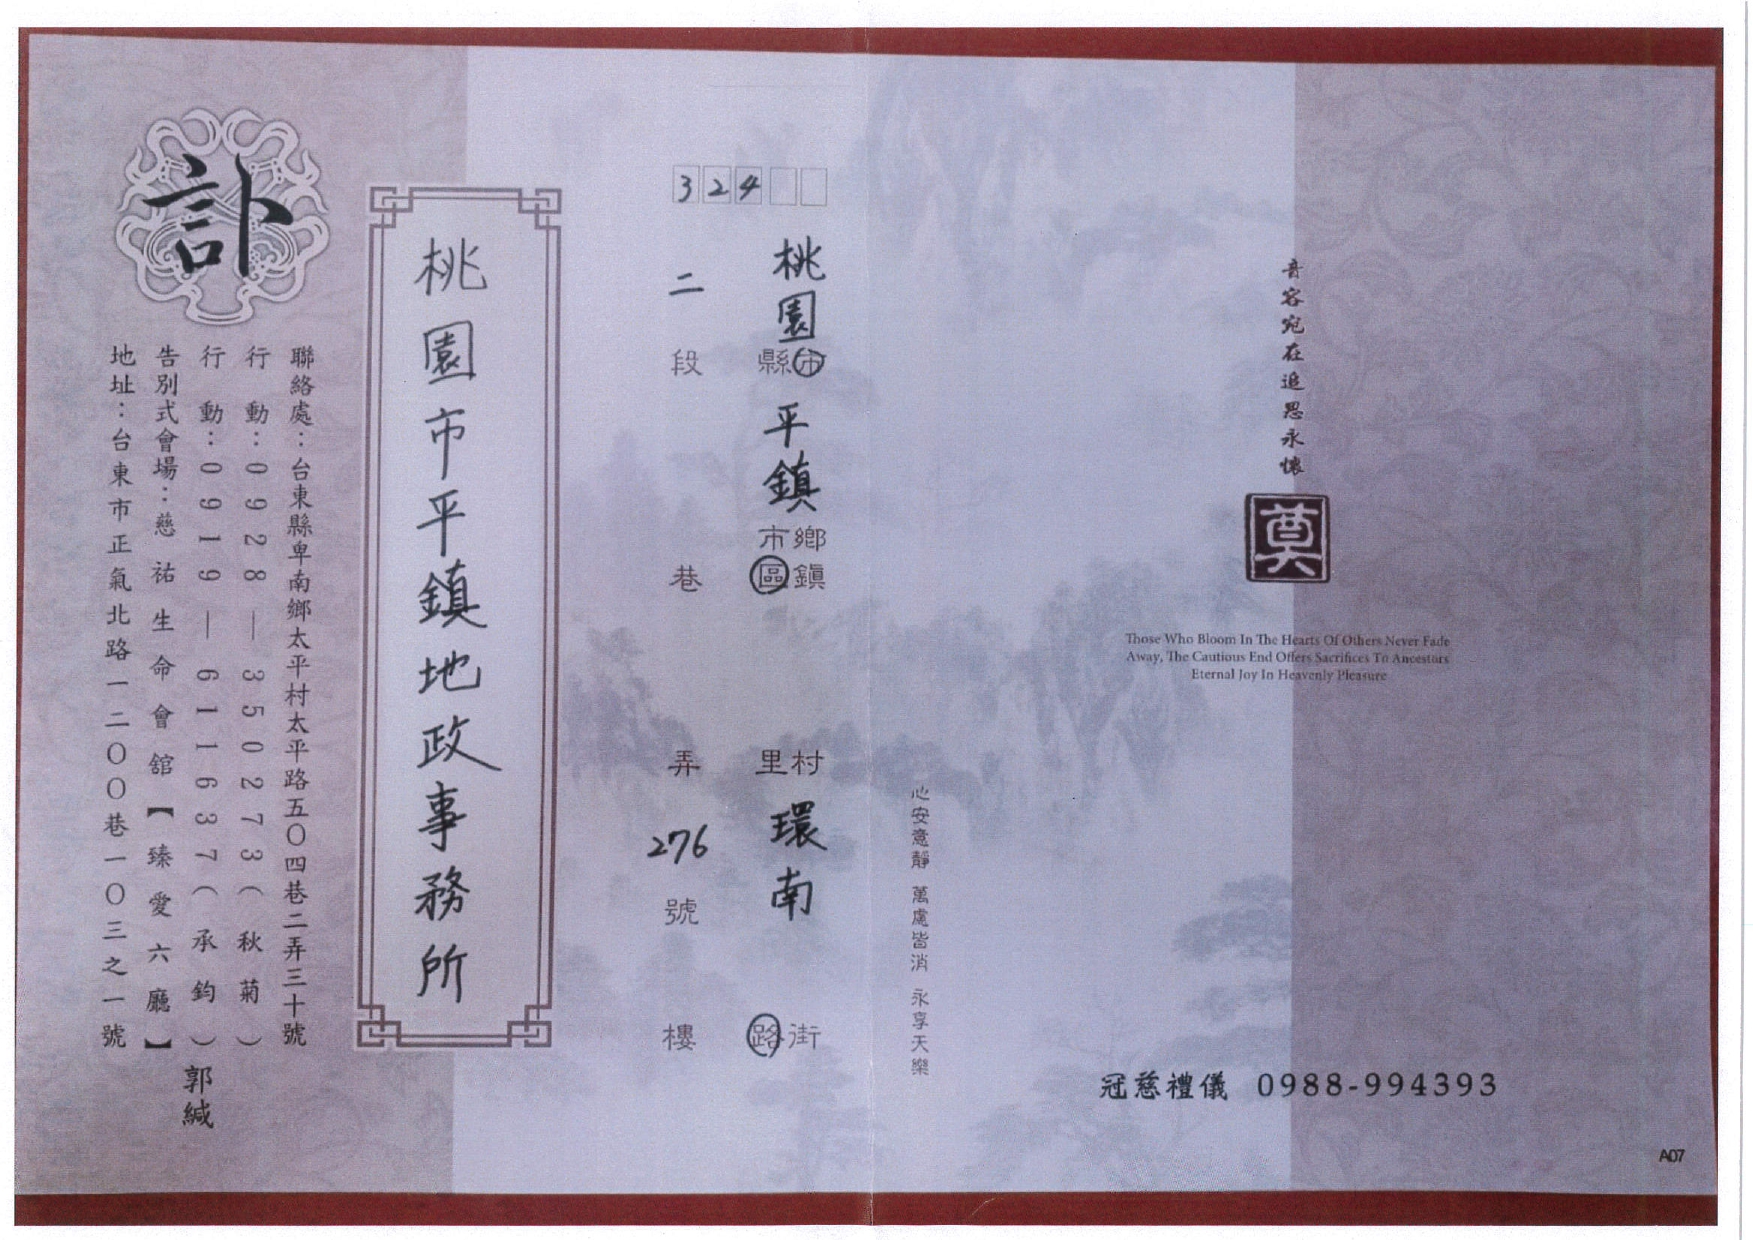 訃
聯絡處：台東縣卑南鄉太平村太平路五〇四巷二弄三十號
行動：0928—350273（秋菊）
行動：0919—611637（承鈞）
告別式會場：慈祐生命會館【臻愛六廳】
地址：台東市正氣北路一二〇〇巷一〇三之一號
郭緘
桃園市平鎮地政事務所
324
桃園縣市平鎮鄉鎮市區村里環南街路
二段巷弄276號樓
心安意靜 萬慮皆消 永享天樂
音容宛在追思永懷
奠
Those Who Bloom In The Hearts Of Others Never Fade
Away, The Cautious End Offers Sacrifices To Ancestors
Eternal Joy In Heavenly Pleasure
冠慈禮儀 0988-994393
A07